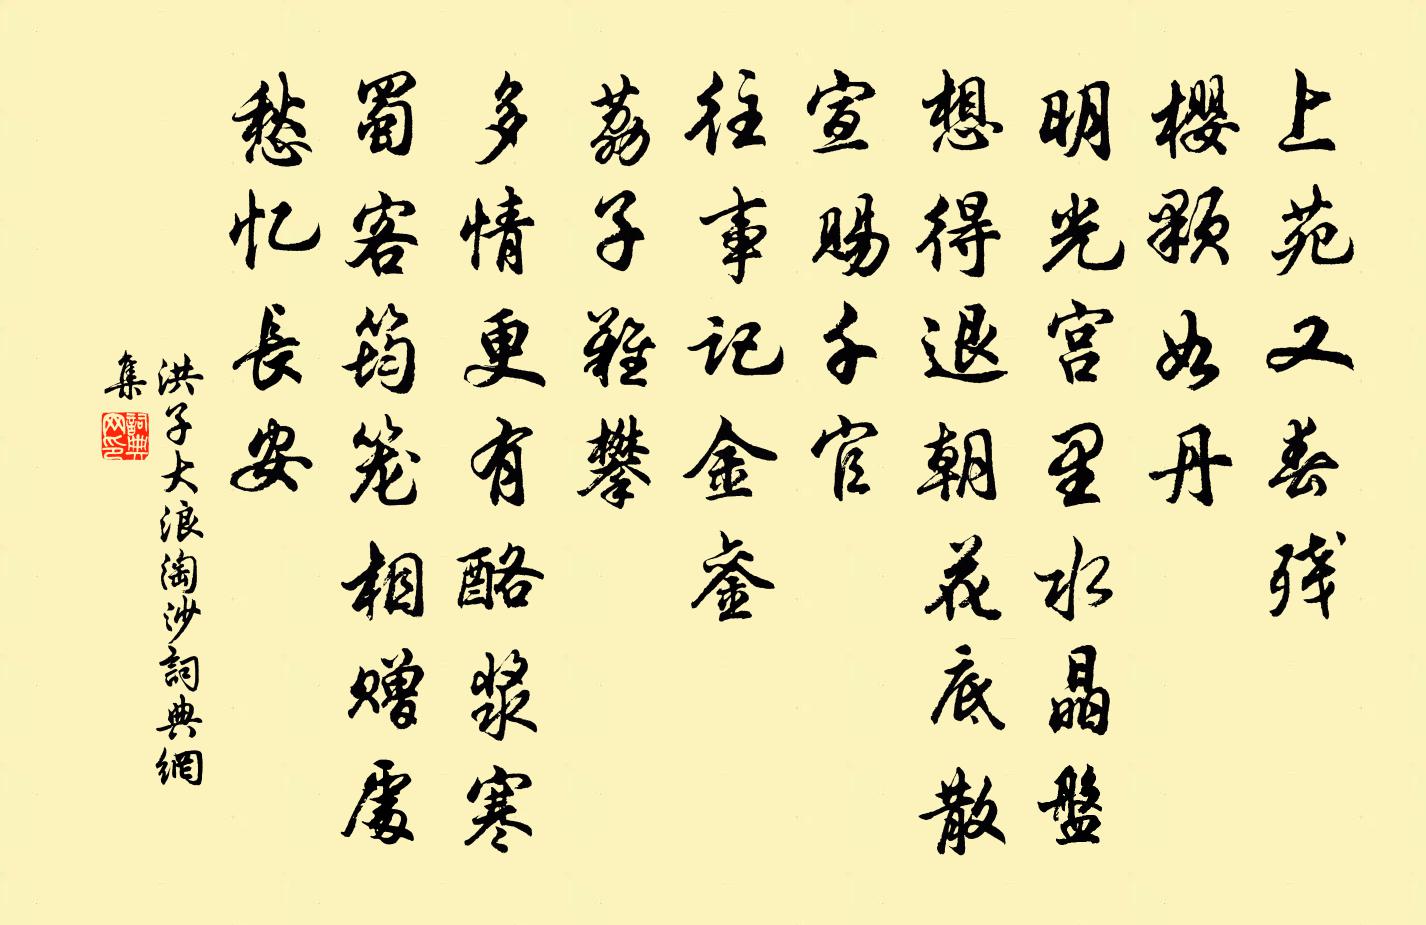 上苑又春残
樱颗如丹
明光宫里水晶盘
想得退朝花底散
宣赐千官
往事记金銮
荔子难攀
多情更有酪浆寒
蜀客筠笼相赠处
愁忆長安
洪子大浪淘沙詞典網
集
詞典网印